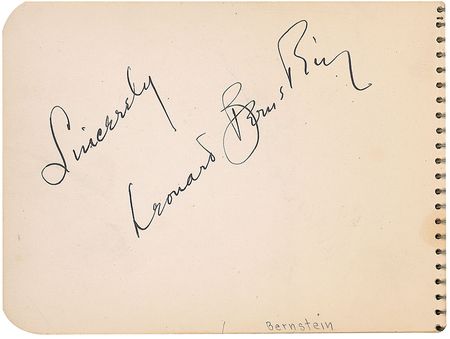 Sincerely
Leonard Bernstein
Bernstein